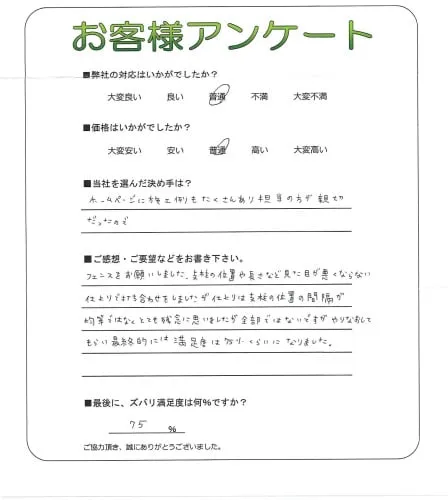 お客様アンケート
■弊社の対応はいかがでしたか？
大変良い 良い 普通 不満 大変不満
■価格はいかがでしたか？
大変安い 安い 普通 高い 大変高い
■当社を選んだ決め手は？
ホームページに施工例もたくさんあり担当の方が親切
だったので
■ご感想・ご要望などをお書き下さい。
フェンスをお願いしました。支柱の位置や長さなど見た目が悪くならない
仕上りで打ち合わせをしましたが仕上りは支柱の位置の間隔が
均等ではなくとても残念に思いましたが全部ではないですがやりなおして
もらい最終的には満足度は75%くらいになりました。
■最後に、ズバリ満足度は何%ですか？
75 %
ご協力頂き、誠にありがとうございました。